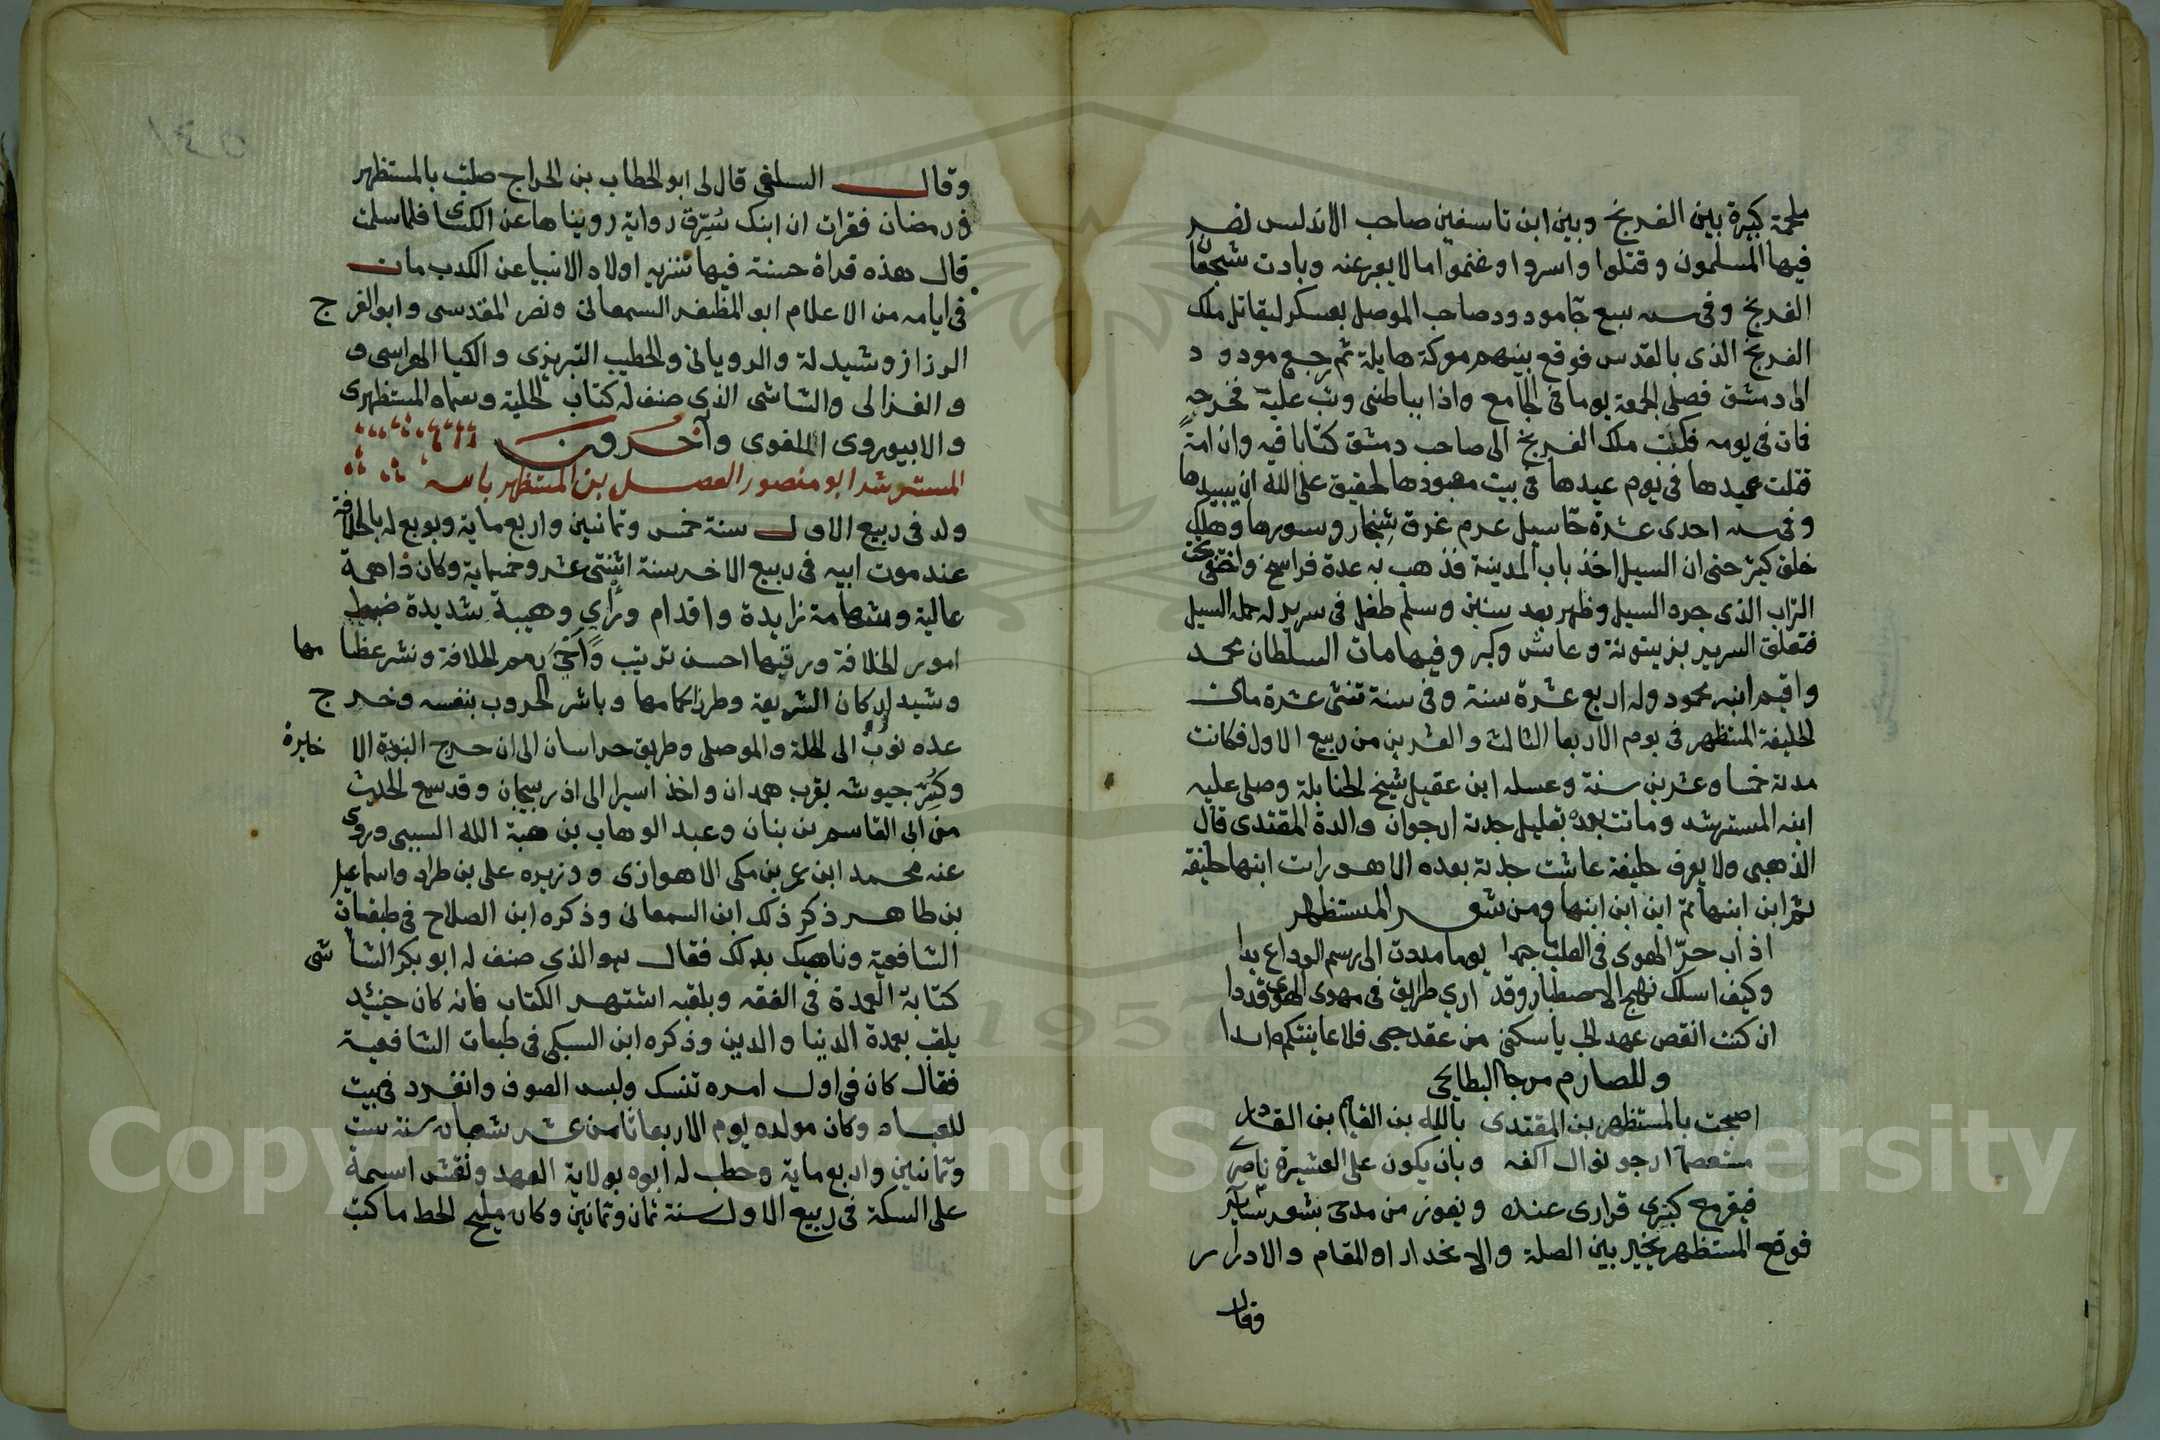 ملحمة كبيرة بين الفرنج وبين ابن تاسفين صاحب الاندلس نصر
فيها المسلمون وقتلوا واسروا وغنموا مالا يعبر عنه وبادت شجعان
الفرنج وفى سنه سبع جآ مودود صاحب الموصل بعسكر ليقاتل ملك
الفرنج الذى بالقدس فوقع بينهم معركة هايلة ثم رجع مودود
الى دمشق فصلى الجمعة يوما فى الجامع واذا بباطنى وثب عليه فجرحه
فمات فى يومه فكتب ملك الفرنج الى صاحب دمشق كتابا فيه وان امة
قتلت عميدها فى يوم عيدها فى بيت معبودها لحقيق على الله ان يبيدها
وفى سنه احدى عشرة جآ سيل عرم غرق سنجار وسورها وهلك
خلق كثير حتى ان السيل اخذ باب المدينة فذهب به عدة فراسخ واختفى تحت
التراب الذى جره السيل وظهر بعد سنين وسلم طفل فى سرير له حمله السيل
فتعلق السرير بزيتونة وعاش وكبر وفيها مات السلطان محمد
واقيم ابنه محمود وله اربع عشرة سنة وفى سنة ثنتى عشرة مات
الخليفة المستظهر فى يوم الاربعا الثالث والعشرين من ربيع الاول فكانت
مدته خمسا وعشرين سنة وغسله ابن عقيل شيخ الحنابلة وصلى عليه
ابنه المسترشد وماتت بعده بقليل جدته ارجوان والدة المقتدى قال
الذهبى ولا يعرف خليفة عاشت جدته بعده الا هو رات ابنها خليفة
ثم ابن ابنها ثم ابن ابن ابنها ومن شعر المستظهر
اذاب حرّ الهوى فى القلب ما جمدا يوما مددت الى رسم الوداع يدا
وكيف اسلك نهج الاصطبار وقد ارى طرايق فى مهوى الهوى قددا
ان كنت انقض عهد الحب يا سكنى من عقد حبى فلا عاينتكم ابدا
وللصارم مرجا البطايحى
اصبحت بالمستظهر بن المقتدى بالله بن القايم بن القادر
مستعصما ارجو نوال اكفه وبان يكون على العشيرة ناصرى
فيقر مع كبرى قرارى عنده ويفوز من مدحى بشعر ساير
فوقع المستظهر بخير بين الصلة والانحدار او المقام والادرار
فقال
وقال السلفى قال لى ابو الخطاب بن الجراح صليت بالمستظهر
فى رمضان فقرات ان ابنك سُرِّق رواية رويناها عن الكسائى فلما سلمت
قال هذه قراة حسنة فيها تنزيه اولاد الانبيا عن الكذب مات
فى ايامه من الاعلام ابو المظفر السمعانى ونصر المقدسى وابو الفرج
الرزاز وشيدلة والرويانى والخطيب التبريزى والكيا الهراسى و
والغزالى والشاشى الذى صنف له كتاب الحلية وسماه المستظهرى
والابيوردى اللغوى وآخرون
المسترشد ابو منصور الفضل بن المستظهر بالله
ولد فى ربيع الاول سنة خمس وثمانين واربعماية وبويع له بالخلافة
عند موت ابيه فى ربيع الاخر سنة اثنتى عشر وخمسماية وكان ذا همة
عالية وشهامة زايدة واقدام ورأي وهيبة شديدة ضبط
امور الخلافة ورتبها احسن ترتيب وأحيَ رمم الخلافة ونشر عظامها
وشيد اركان الشريعة وطرز اكمامها وباشر الحروب بنفسه وخرج
عده نوب الى الحلة والموصل وطريق خراسان الى ان خرج النوبة الاخيرة
وكُسر جيوشه بقرب همدان واخذ اسيرا الى اذربيجان وقد سمع الحديث
من ابى القاسم بن بنان وعبد الوهاب بن هبة الله السيبى وروى
عنه محمد ابن عمر بن مكى الاهوازى ووزيره على بن طراد واسماعيل
بن طاهر ذكر ذلك ابن السمعانى وذكره ابن الصلاح فى طبقات
الشافعية وناهيك بذلك فقال هو الذى صنف له ابو بكر الشاشى
كتابة العمدة فى الفقه وبلقبه اشتهر الكتاب فانه كان حينئيد
يلقب بعمدة الدينا والدين وذكره ابن السبكى فى طبقات الشافعية
فقال كان فى اول امره تنسك ولبس الصوف وانفرد فى بيت
للعباده وكان مولده يوم الاربعا ثامن عشر شعبان سنة ست
وثمانين واربع ماية وخطب له ابوه بولاية العهد ونقش اسمه
على السكة فى ربيع الاول سنة ثمان وثمانين وكان مليح الخط ماكتب
Copyright © King Saud University
1957